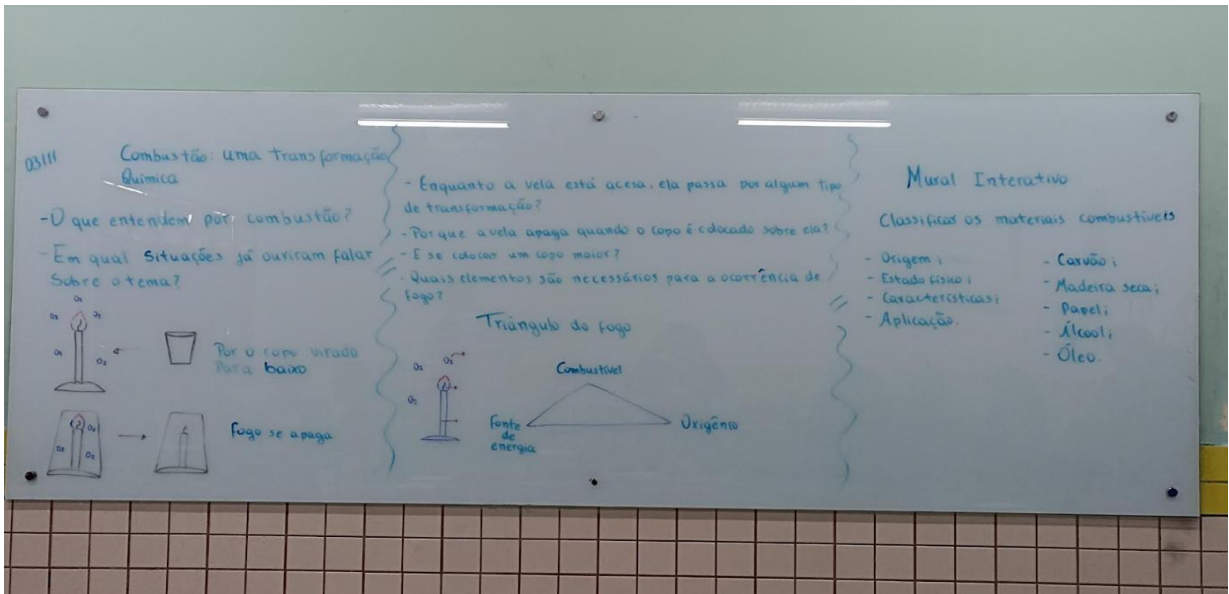 03/11
Combustão: uma transformação
Química
-O que entendem por combustão?
-Em qual situações já ouviram falar
Sobre o tema?
O₂
O₂
O₂
O₂
O₂
Por o copo virado
Para baixo
O₂
O₂
O₂
Fogo se apaga
- Enquanto a vela está acesa, ela passa por algum tipo
de transformação?
- Por que a vela apaga quando o copo é colocado sobre ela?
- E se colocar um copo maior?
- Quais elementos são necessários para a ocorrência de
fogo?
Triângulo do fogo
O₂
O₂
O₂
Combustível
Fonte
de
energia
Oxigênio
Mural Interativo
Classificar os materiais combustíveis
- Origem;
- Estado físico;
- Características;
- Aplicação.
- Carvão;
- Madeira seca;
- Papel;
- Álcool;
- Óleo.